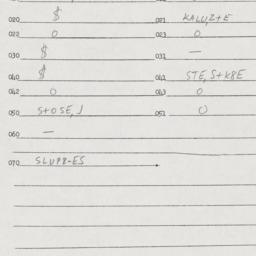 020 $ 021 KALU,Z+E
022 0 023 0
030 $ 031 —
040 $ 041 STE,S+KBE
042 0 043 0
050 S+OSE,J 051 0
060 —
070 SLUPB-ES